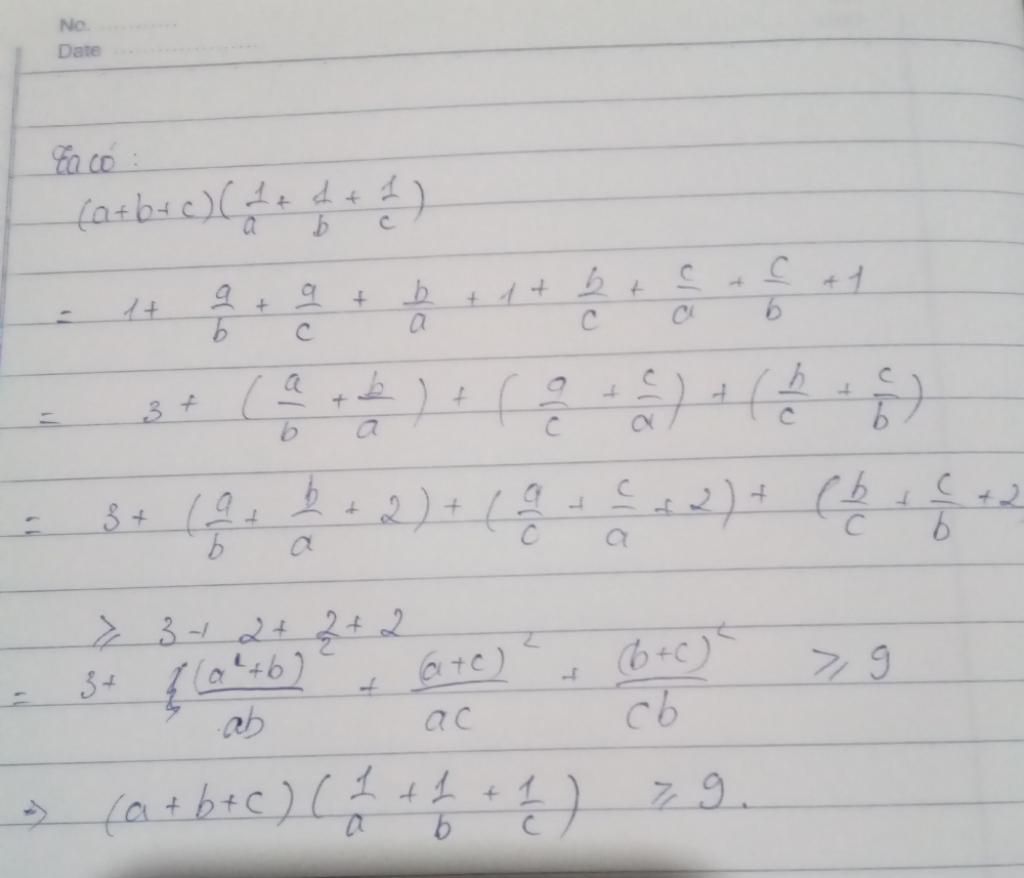 No. ..............
Date ..........................
Ta có :
(a+b+c)(1/a + 1/b + 1/c)
= 1 + a/b + a/c + b/a + 1 + b/c + c/a + c/b + 1
= 3 + (a/b + b/a) + (a/c + c/a) + (b/c + c/b)
= 3 + (a/b + b/a + 2) + (a/c + c/a + 2) + (b/c + c/b + 2
≥ 3 + 2 + 2 + 2
= 3 + (a²+b)²/ab + (a+c)²/ac + (b+c)²/cb ≥ 9
⇒ (a+b+c)(1/a + 1/b + 1/c) ≥ 9.